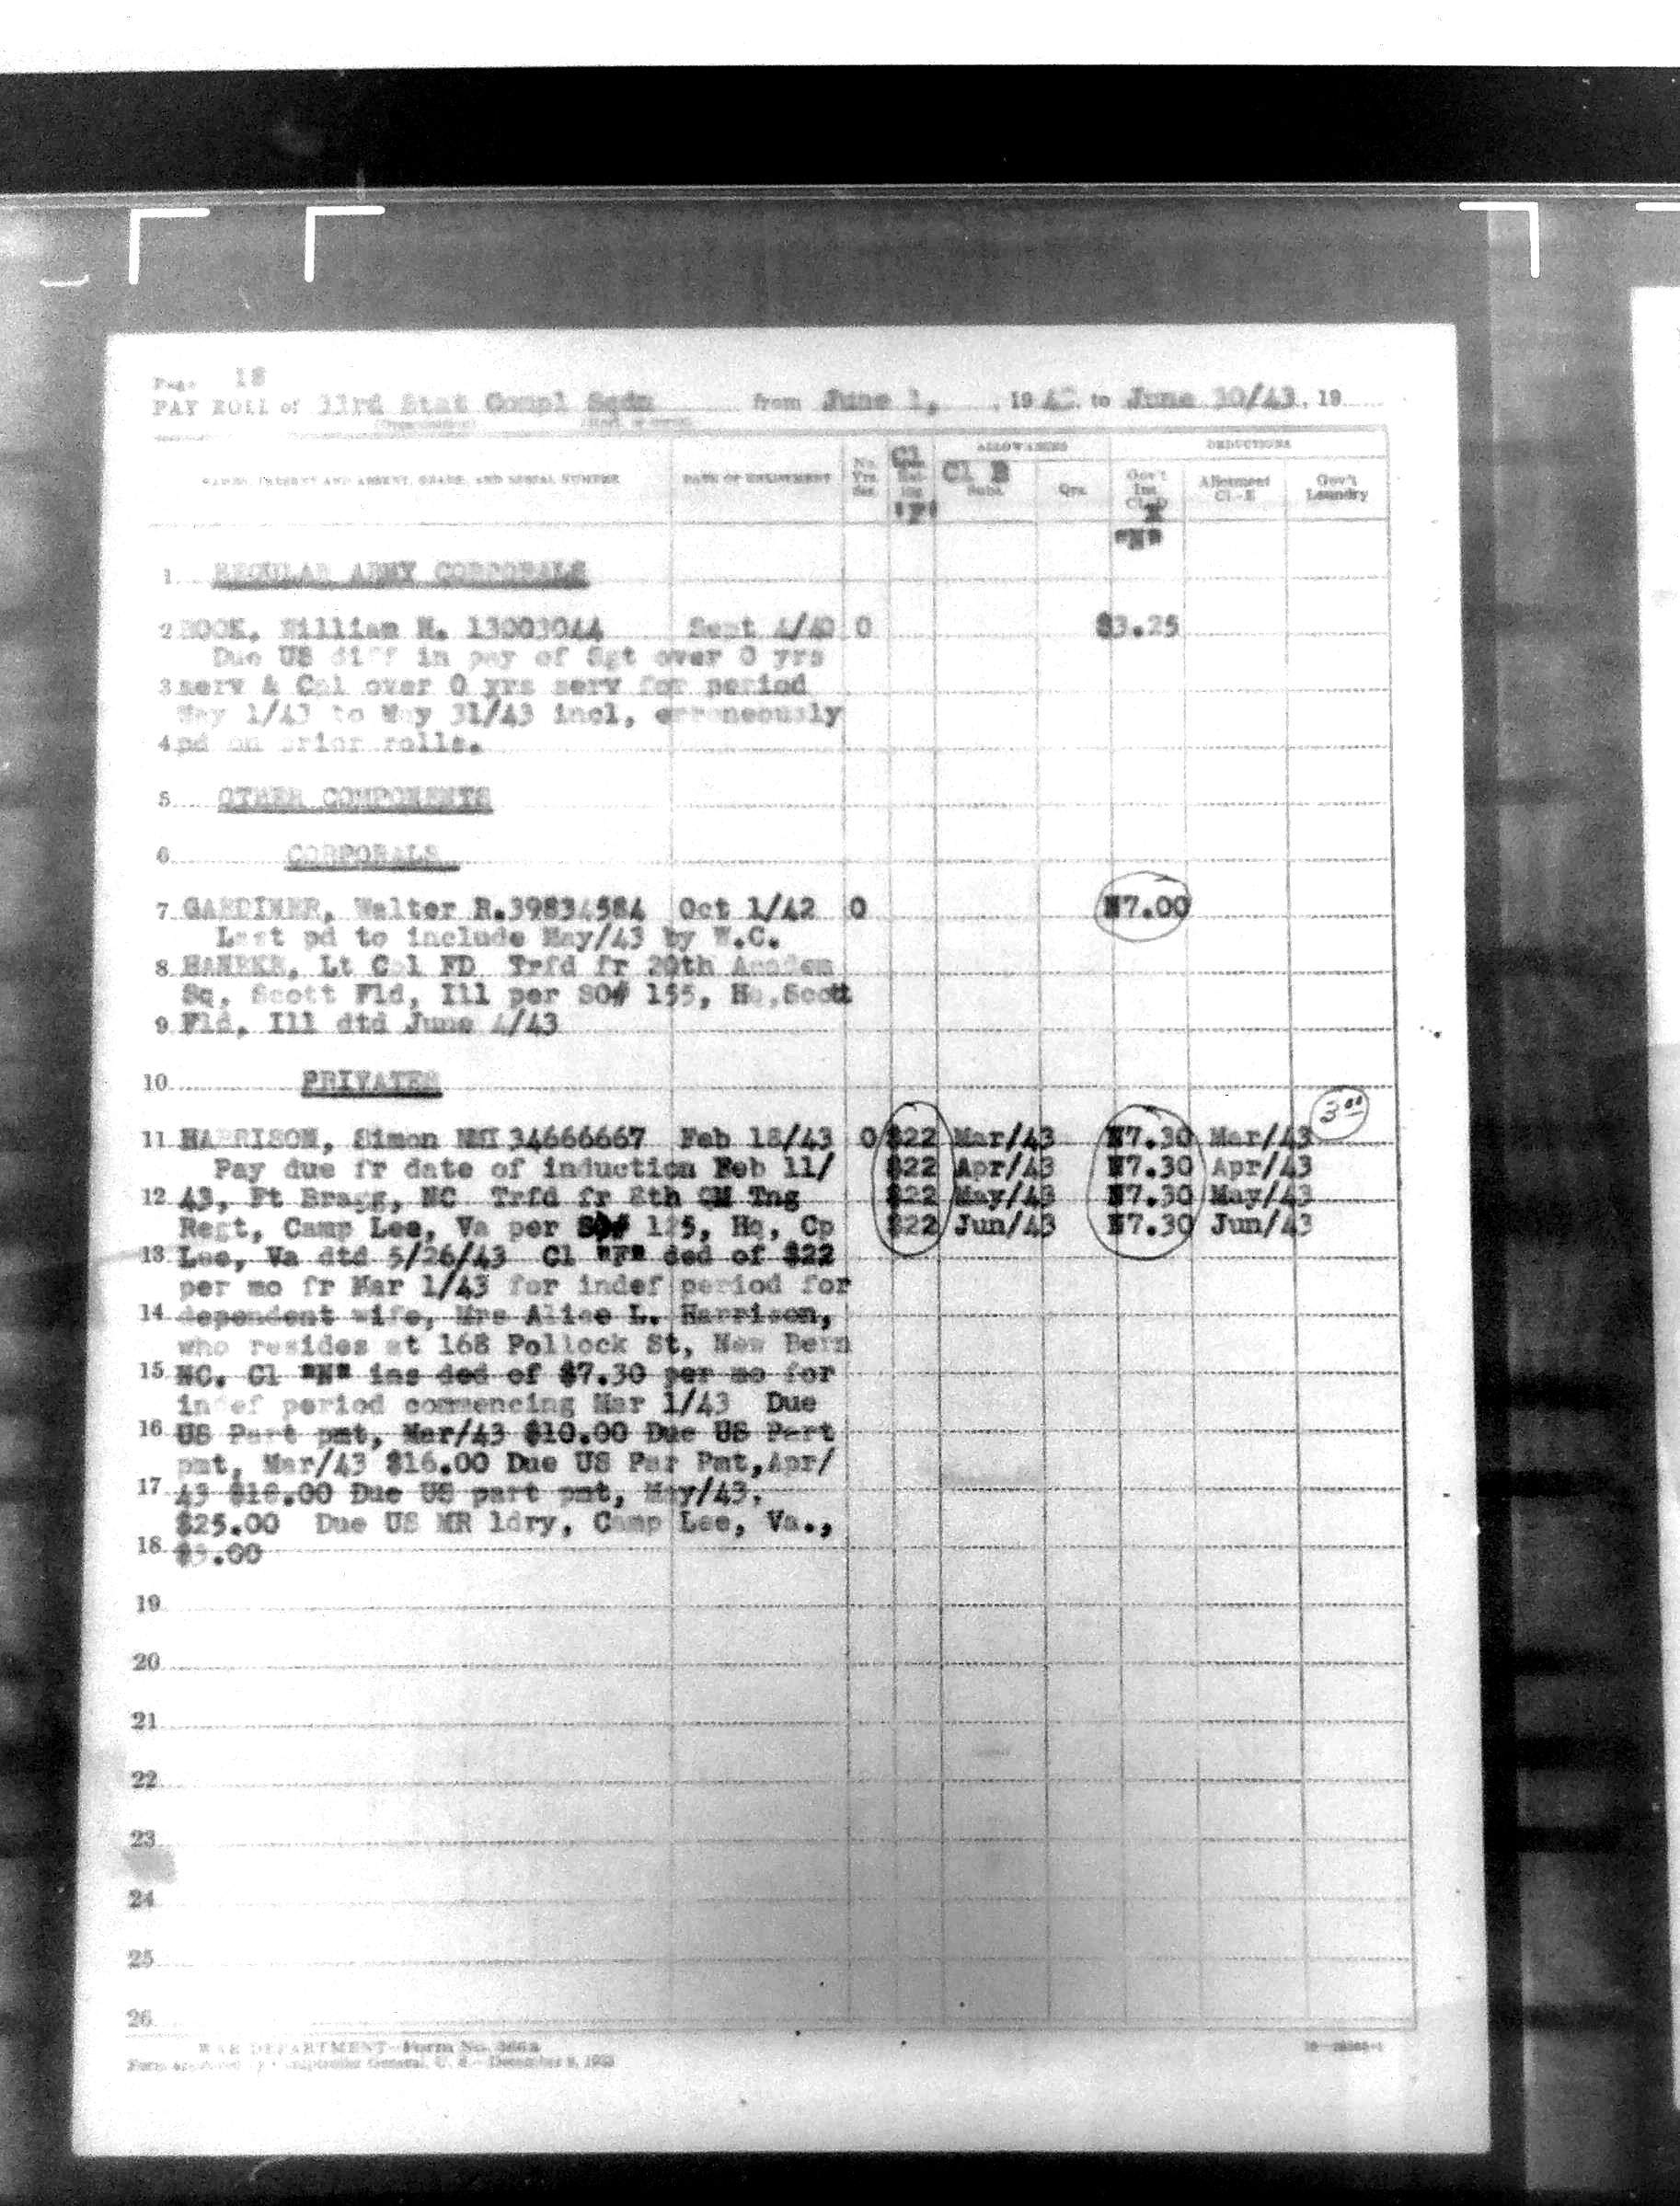 Page 18
PAY ROLL of 33rd Stat Compl Sqdn from June 1, 19 to June 30/43, 19
ALLOWANCES DEDUCTIONS
NAMES, PRESENT AND ABSENT, GRADE, AND SERIAL NUMBER DATE OF ENLISTMENT No. Yrs. Ser. Cl "F" Cl B Subs. Qrs. Gov't Ins. Cl-D Allotment Cl.-E Gov't Laundry
"N"
1 REGULAR ARMY CORPORALS
2 William H. 13003044 Sept 4/40 0 $3.25
Due US diff in pay of Sgt over 0 yrs
3 serv & Cpl over 0 yrs serv for period
May 1/43 to May 31/43 incl, erroneously
4 pd on prior rolls.
5 OTHER COMPONENTS
6 CORPORALS
7 GARDINER, Walter R.39834584 Oct 1/42 0 N7.00
Last pd to include May/43 by W.C.
8 Lt Col FD Trfd fr 20th Academ
Sq, Scott Fld, Ill per SO# 155, Hq,Scott
9 Fld, Ill dtd June 4/43
10 PRIVATES
11 HARRISON, Simon NMI 34666667 Feb 18/43 0 $22 Mar/43 N7.30 Mar/43 3.00
Pay due fr date of induction Feb 11/ $22 Apr/43 N7.30 Apr/43
12 43, Ft Bragg, NC Trfd fr 8th QM Tng $22 May/43 N7.30 May/43
Regt, Camp Lee, Va per SO# 125, Hq, Cp $22 Jun/43 N7.30 Jun/43
13 Lee, Va dtd 5/26/43 Cl "F" ded of $22
per mo fr Mar 1/43 for indef period for
14 dependent wife, Mrs Alice L. Harrison,
who resides at 168 Pollock St, New Bern
15 NC. Cl "N" ins ded of $7.30 per mo for
indef period commencing Mar 1/43 Due
16 US Part pmt, Mar/43 $10.00 Due US Part
pmt, Mar/43 $16.00 Due US Par Pmt,Apr/
17 43 $10.00 Due US part pmt, May/43,
$25.00 Due US MR ldry, Camp Lee, Va.,
18 $3.00
19
20
21
22
23
24
25
26
WAR DEPARTMENT—Form No.
Form approved by Comptroller General, U. S.—December 8,